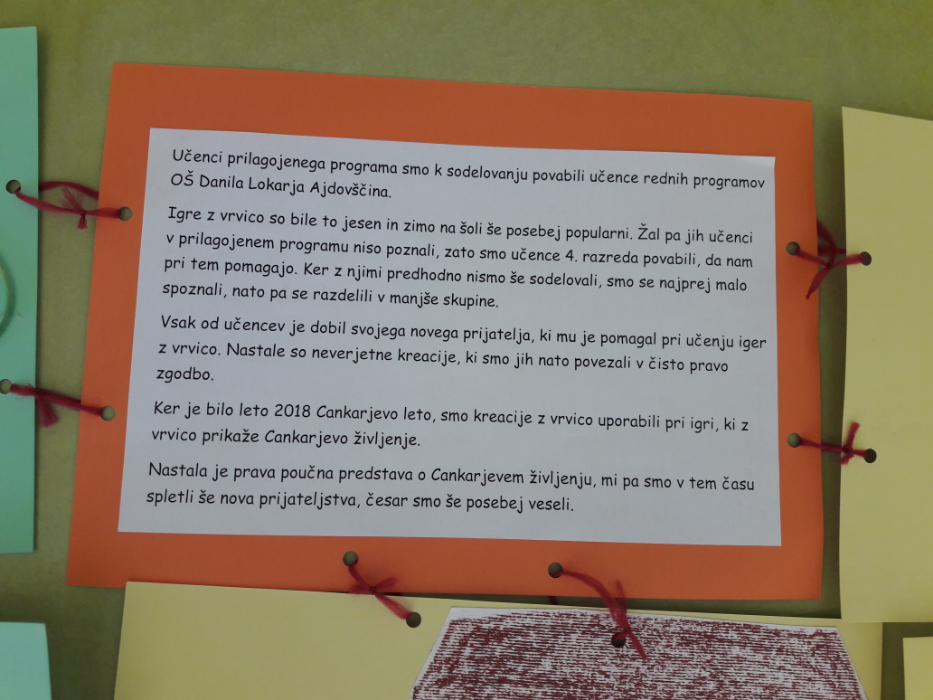 Učenci prilagojenega programa smo k sodelovanju povabili učence rednih programov
OŠ Danila Lokarja Ajdovščina.
Igre z vrvico so bile to jesen in zimo na šoli še posebej popularni. Žal pa jih učenci
v prilagojenem programu niso poznali, zato smo učence 4. razreda povabili, da nam
pri tem pomagajo. Ker z njimi predhodno nismo še sodelovali, smo se najprej malo
spoznali, nato pa se razdelili v manjše skupine.
Vsak od učencev je dobil svojega novega prijatelja, ki mu je pomagal pri učenju iger
z vrvico. Nastale so neverjetne kreacije, ki smo jih nato povezali v čisto pravo
zgodbo.
Ker je bilo leto 2018 Cankarjevo leto, smo kreacije z vrvico uporabili pri igri, ki z
vrvico prikaže Cankarjevo življenje.
Nastala je prava poučna predstava o Cankarjevem življenju, mi pa smo v tem času
spletli še nova prijateljstva, česar smo še posebej veseli.